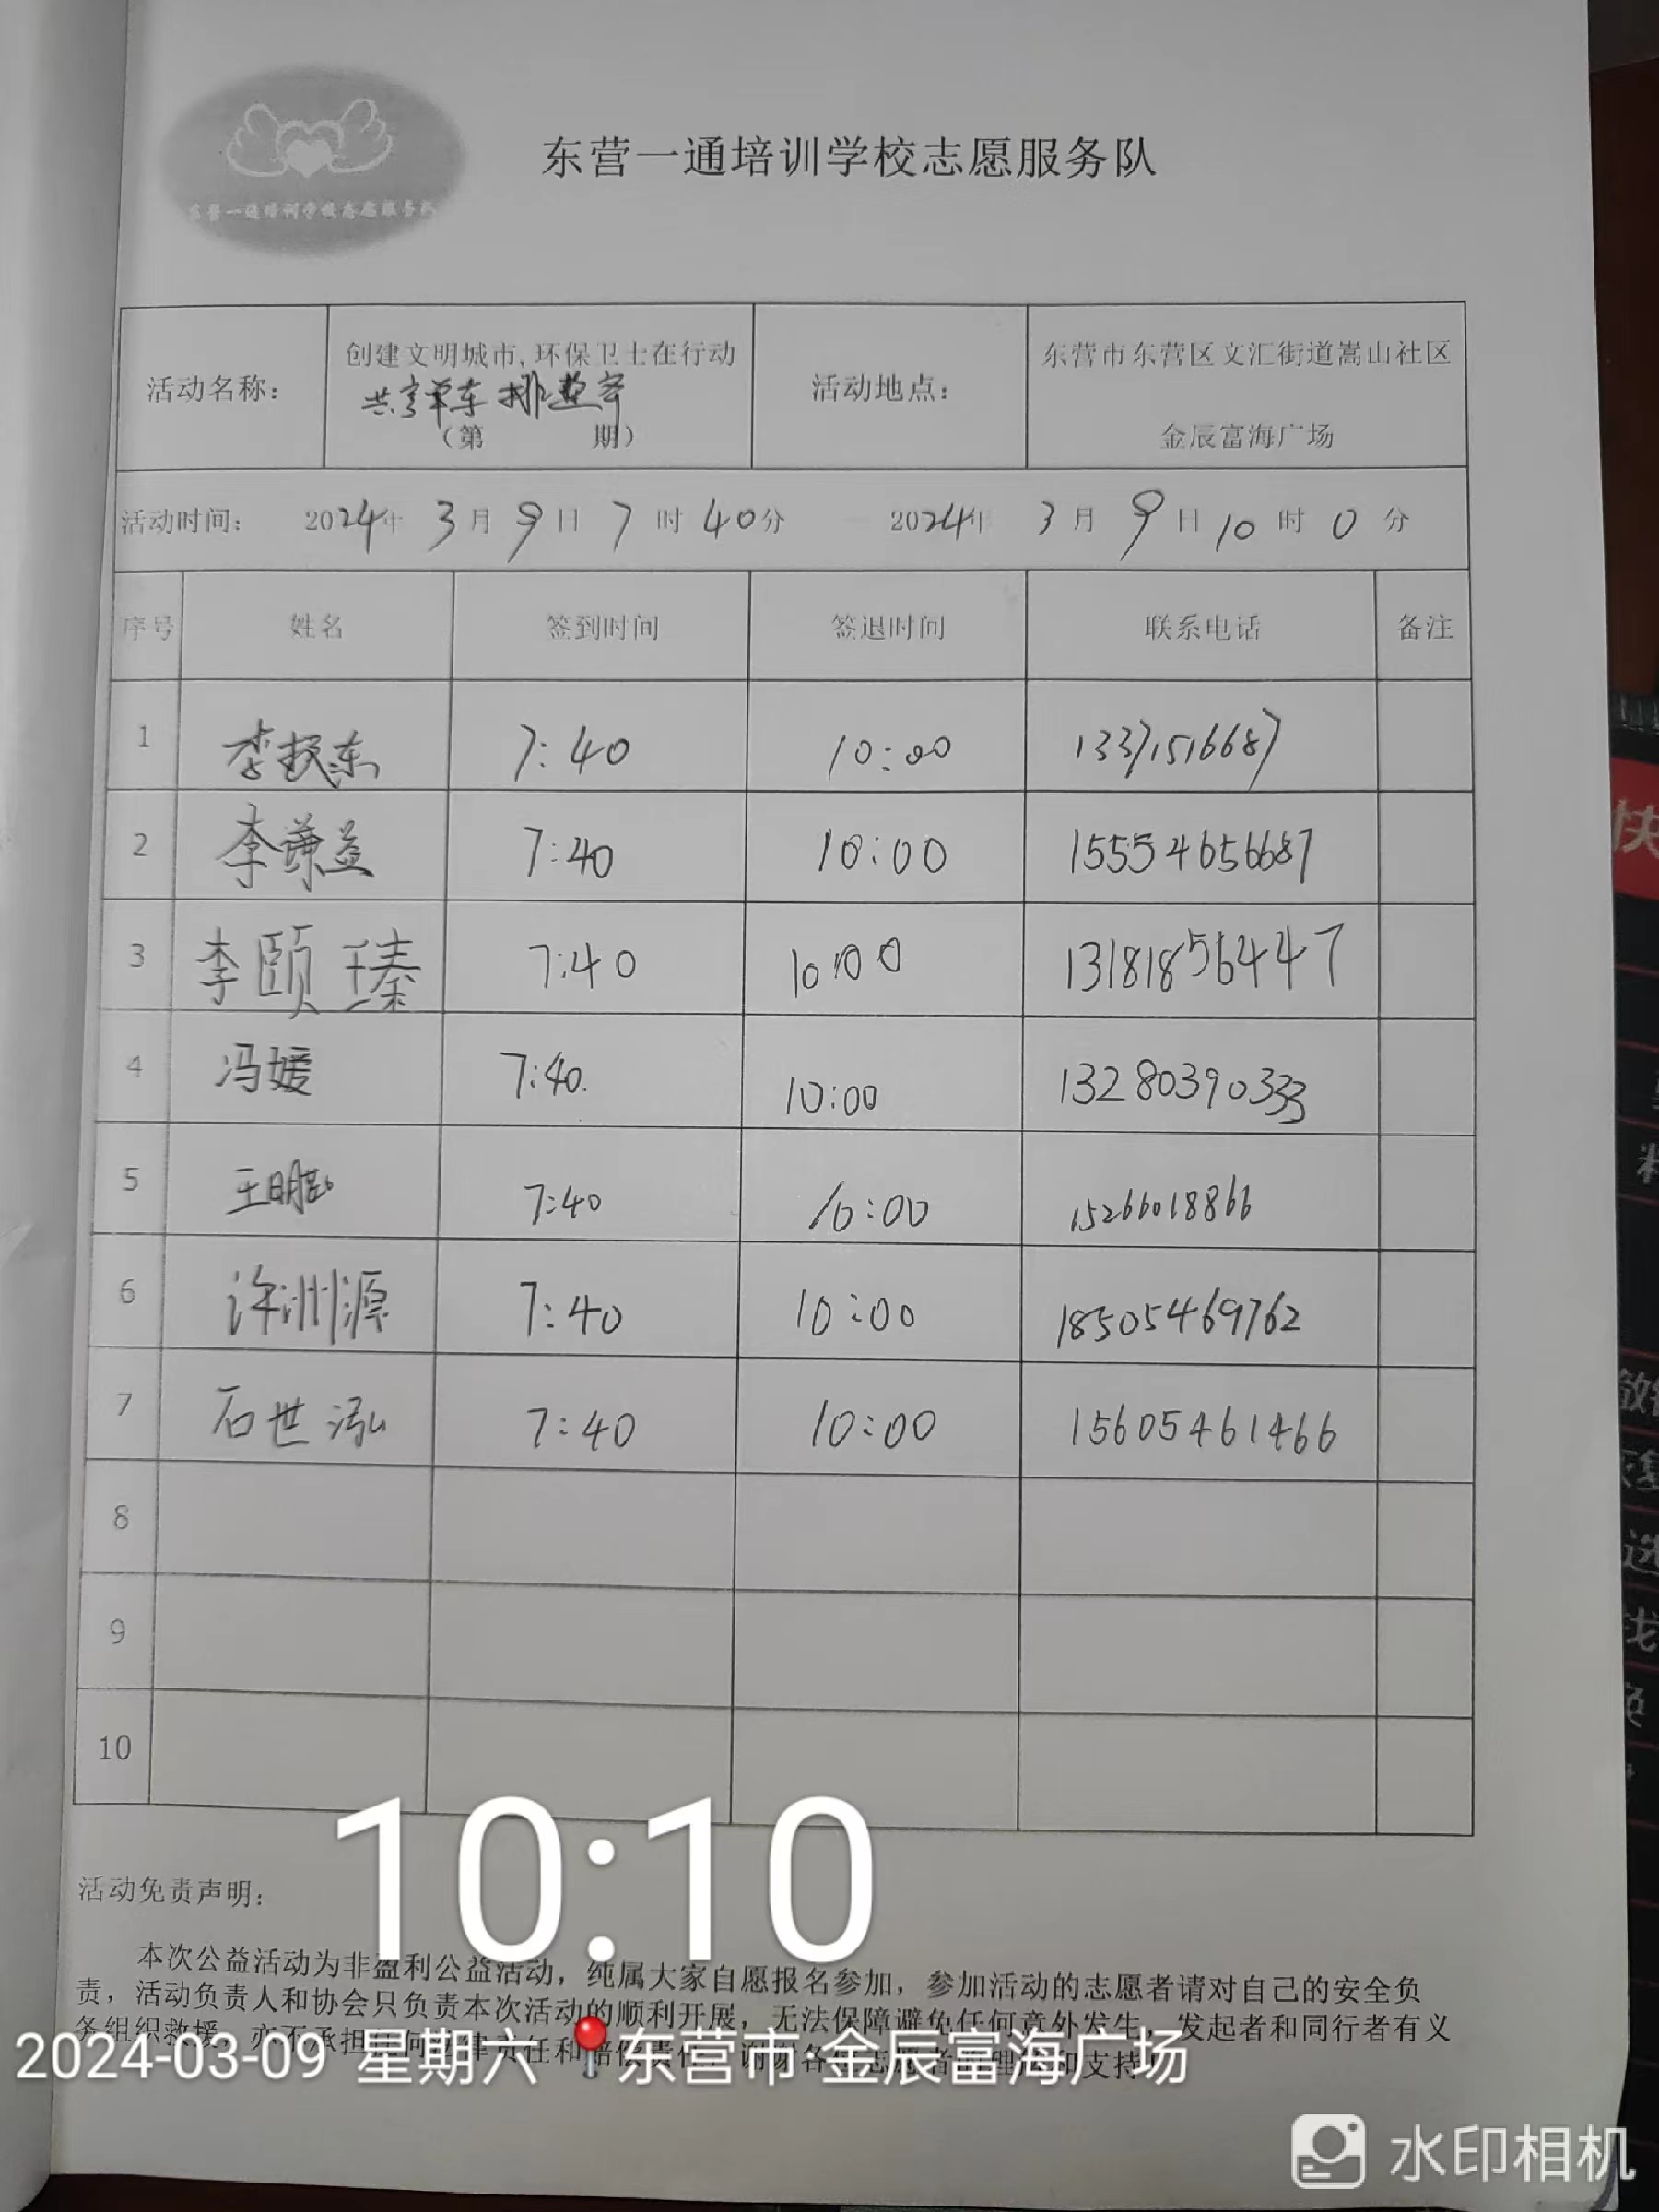 东营一通培训学校志愿服务队
东营一通培训学校志愿服务队
活动名称：
创建文明城市，环保卫士在行动
共享单车排整齐
（第 期）
活动地点：
东营市东营区文汇街道嵩山社区
金辰富海广场
活动时间： 2024年 3月 9日 7时 40分 2024年 3月 9日 10时 0分
序号 姓名 签到时间 签退时间 联系电话 备注
1 李振东 7:40 10:00 13371516687
2 李谦益 7:40 10:00 15554656687
3 李颐瑧 7:40 10:00 13181856447
4 冯媛 7:40. 10:00 13280390333
5 王明 7:40 10:00 15266018866
6 许洲源 7:40 10:00 18505469762
7 石世泓 7:40 10:00 15605461466
8
9
10
10:10
活动免责声明：
本次公益活动为非盈利公益活动，纯属大家自愿报名参加，参加活动的志愿者请对自己的安全负
责，活动负责人和协会只负责本次活动的顺利开展，无法保障避免任何意外发生，发起者和同行者有义
务组织救援，亦不承担任何法律责任和赔偿责任，谢谢各位志愿者的理解和支持
2024-03-09 星期六 东营市·金辰富海广场
水印相机
快